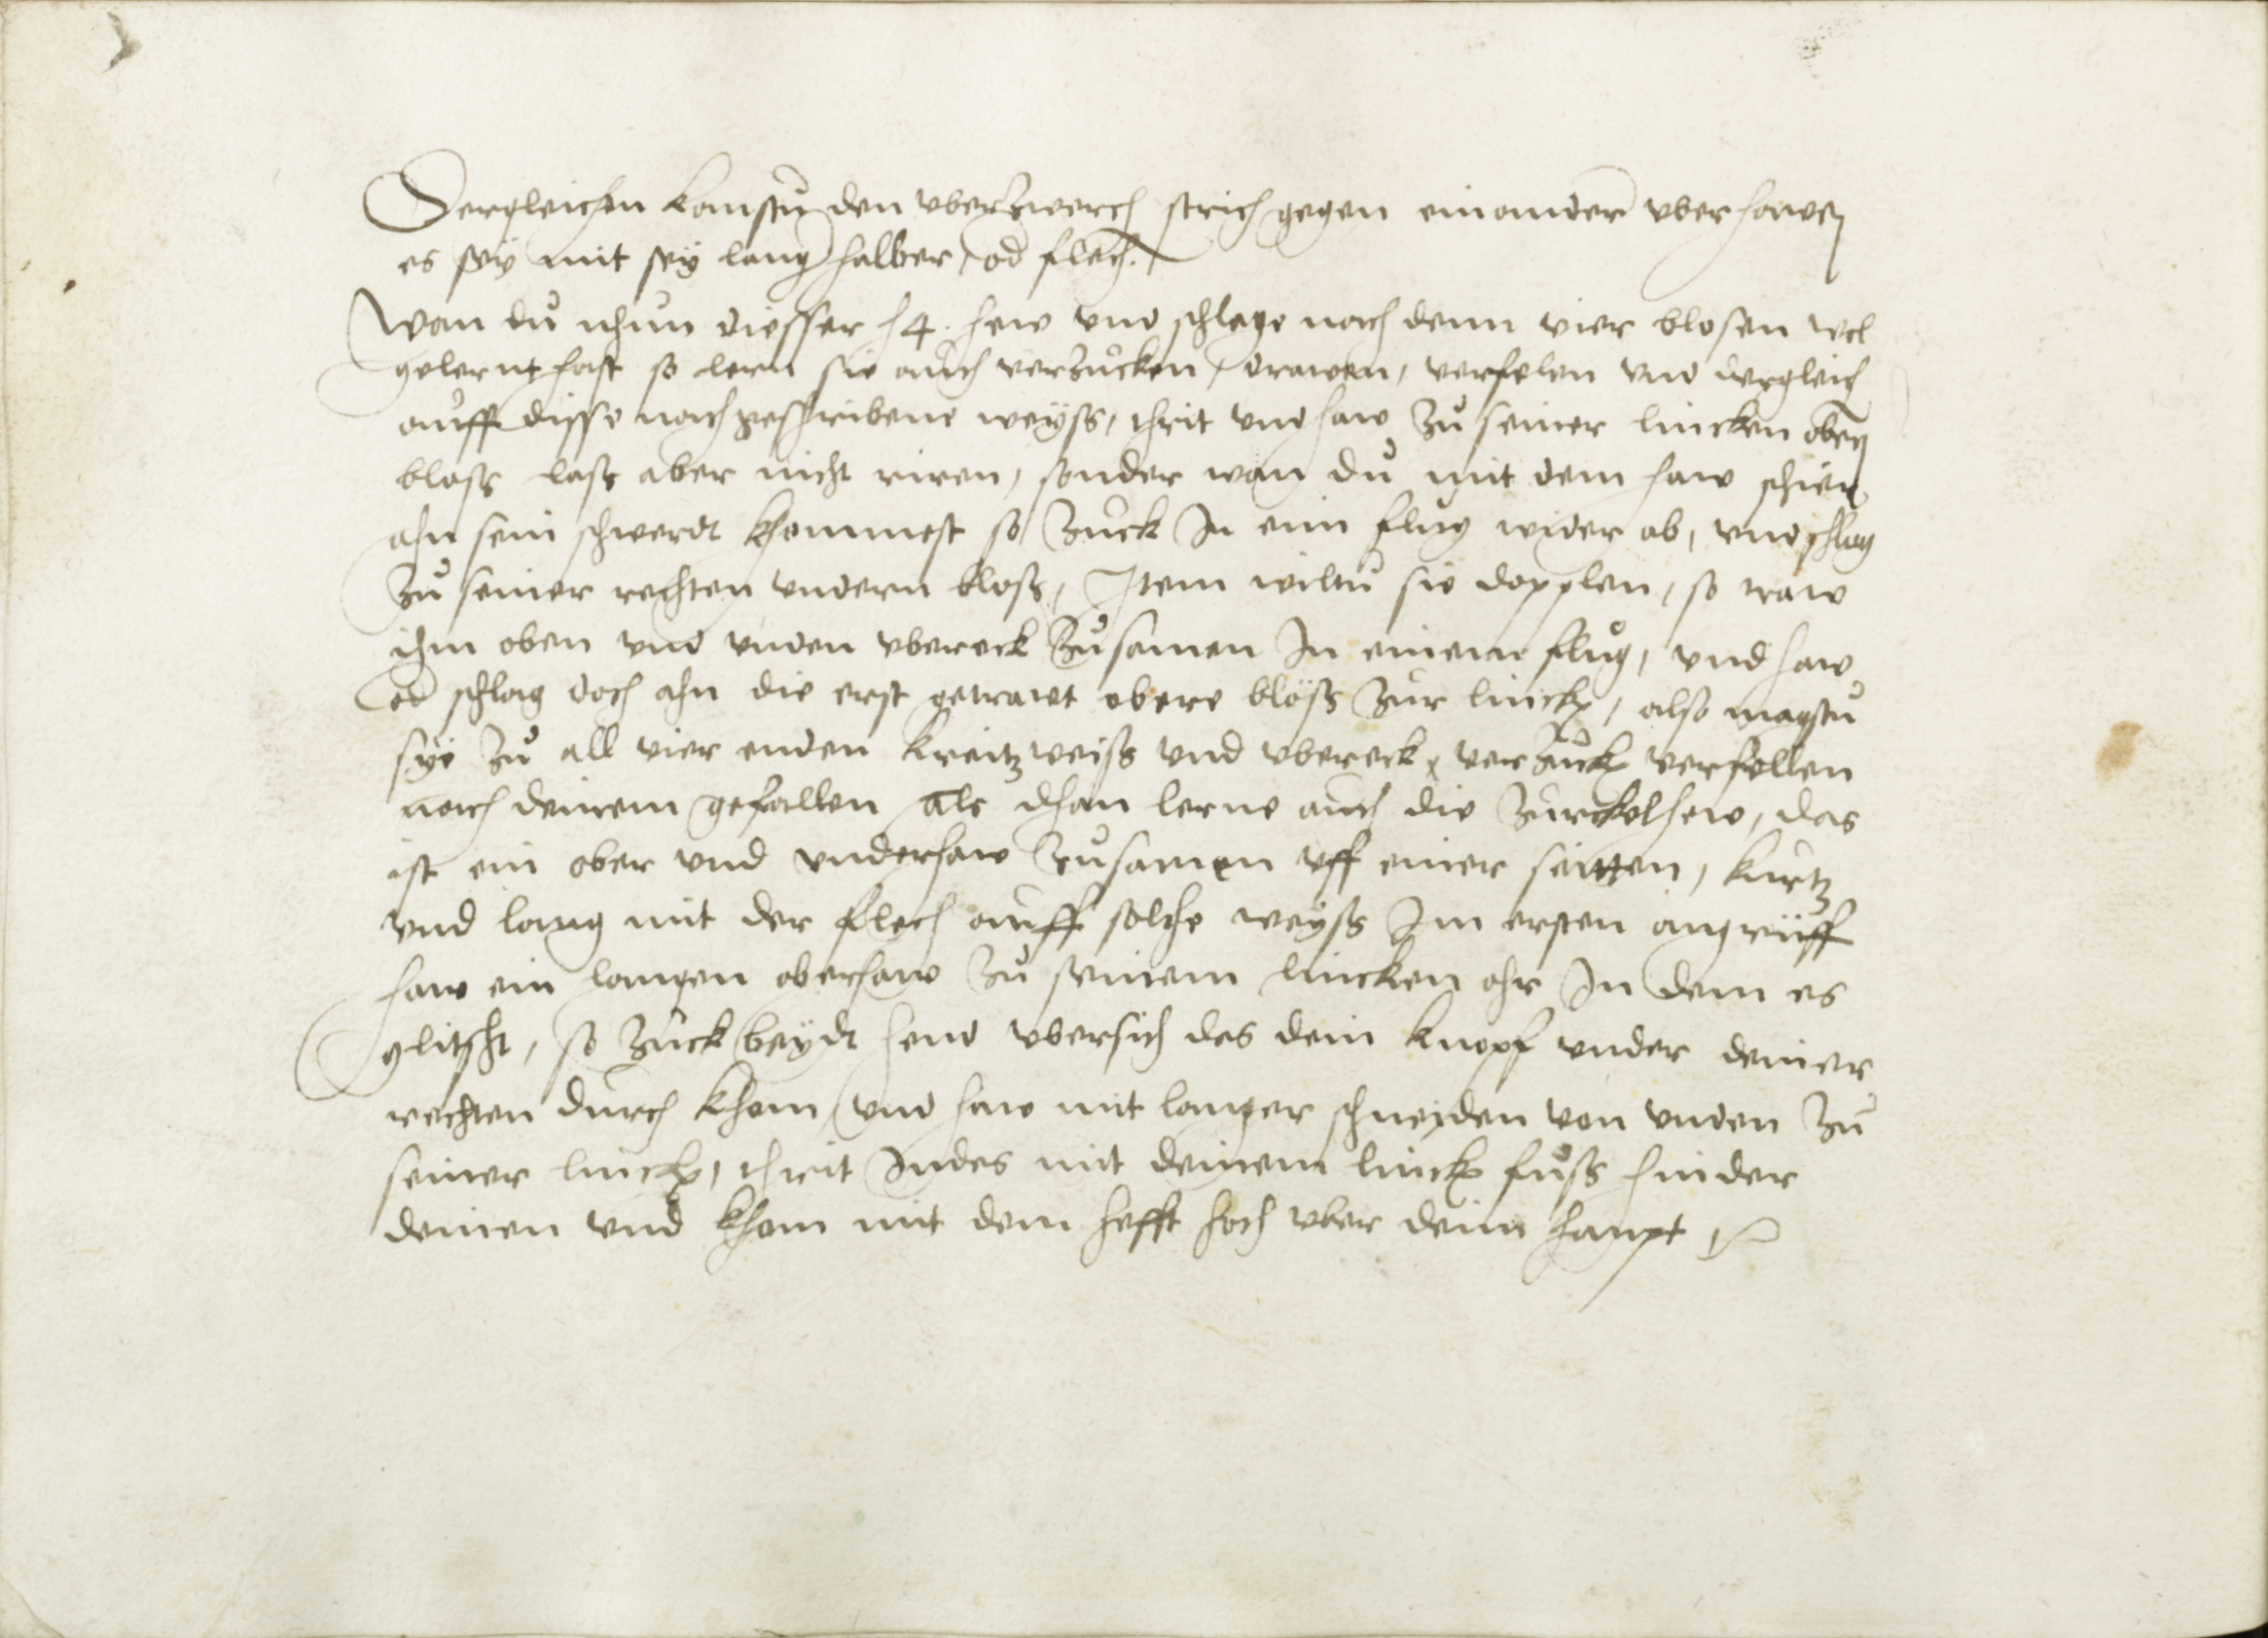 Dergleichen kanstu den uberzwerch strich gegen einander uber hawen
es sey mit sey lang halber, od flech.
Wan du nhun diesser h4. hew vnd schlege nach denn vier blosen wol
gelernt hast so lern sie auch verzucken, trawen, verfelen vnd dergleich
auff disse nach geschribene weyss, thrit vnd haw zu seiner lincken obern
bloss lass aber nicht riren, sonder wan du mit dem haw schier
ahn sein schwerdt khommest so zuck In eim flug wider ab, vnd schlag
zu seiner rechten vndern bloss, Item wiltu sie dopplen, so traw
ihm oben vnd vnden vbereck zusamen In einem flug, vnd haw
od schlag doch ahn die erst getrawt obere blöss zur linckn, also magstu
sye zu all vier enden kreitz weiss vnd vbereck verzuckn verfellen
nach deinem gefallen als dhan lerne auch die zurckel hew, das
ist ein ober vnd vnderhaw zusamen vff einer seitten, kurtz
vnd lang mit der flech auff solche weyss Im ersten angriff
haw ein langen oberhaw zu seinem lincken ohr In dem es
glitscht, so zuck beydt hend vbersich das dein knopf vnder deiner
rechten durch khom, vnd haw mit langer schneiden von vnden zu
seiner linckn, thrit Indes mit deinem linckn fuss hinder
deinen vnd khom mit dem hefft hoch vber dein haupt